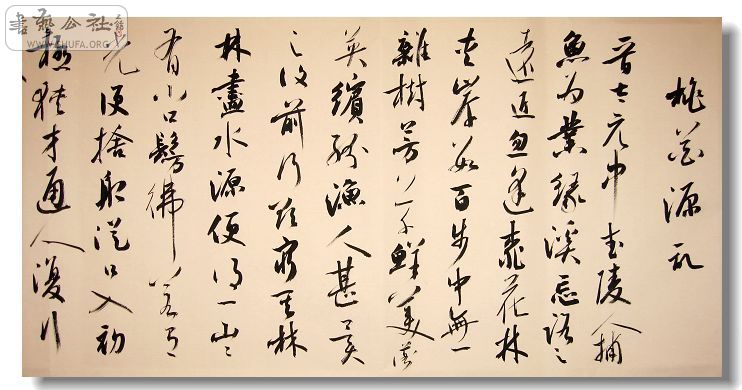 桃花源記
晋太元中武陵人捕
魚为業緣溪忘路之
遠近忽逢桃花林
夹岸数百步中無一
雜樹芳草鮮美落
英繽紛漁人甚異
之復前行欲窮其林
林盡水源便得一山〻
有小口髣彿若有
光便捨船從口入初
極狭才通人復行
書藝公社
WWW.SHUFA.ORG